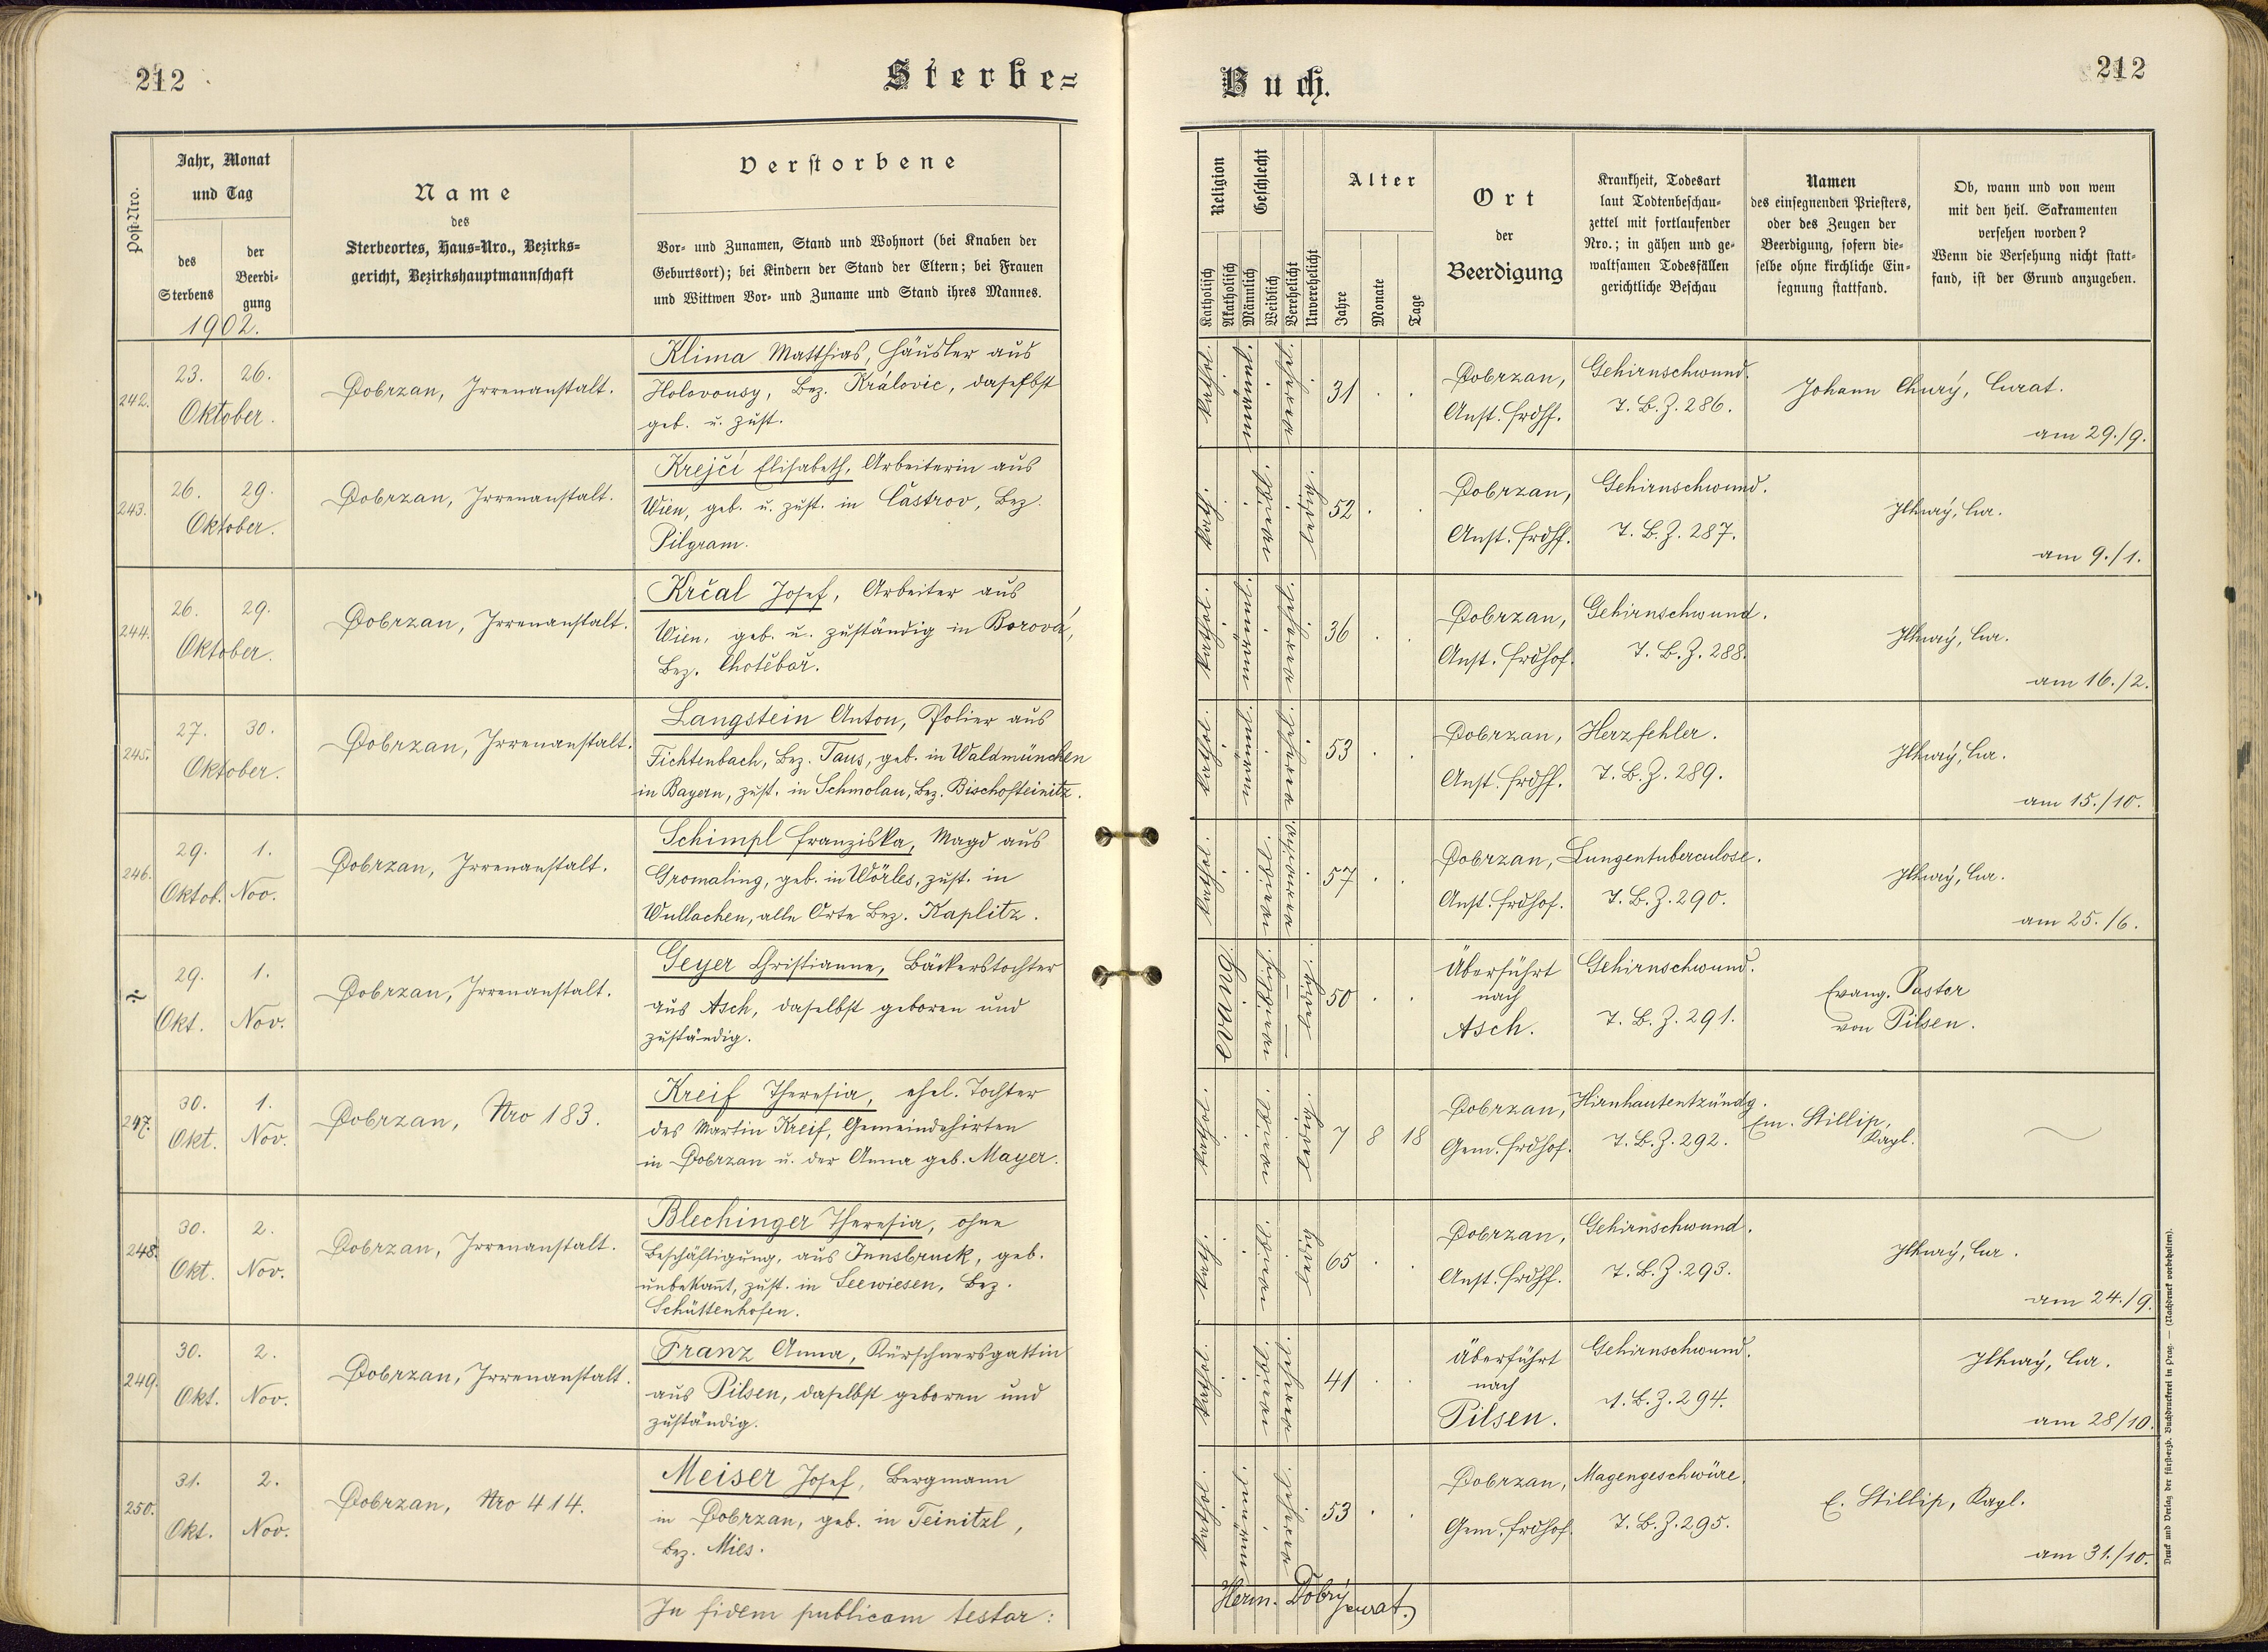 212
Sterbe=
Buch.
212
Post-Nro.
Jahr, Monat
und Tag
des
Sterbens
der
Beerdi-
gung
1902.
Name
des
Sterbeortes, Haus-Nro., Bezirks-
gericht, Bezirkshauptmannschaft
Verstorbene
Vor- und Zunamen, Stand und Wohnort (bei Knaben der
Geburtsort); bei Kindern der Stand der Eltern; bei Frauen
und Wittwen Vor- und Zuname und Stand ihres Mannes.
Religion
Katholisch
Akatholisch
Geschlecht
Männlich
Weiblich
Verehelicht
Unverehelicht
Alter
Jahre
Monate
Tage
Ort
der
Beerdigung
Krankheit, Todesart
laut Todtenbeschau-
zettel mit fortlaufender
Nro.; in gähen und ge-
waltsamen Todesfällen
gerichtliche Beschau
Namen
des einsegnenden Priesters,
oder des Zeugen der
Beerdigung, sofern die-
selbe ohne kirchliche Ein-
segnung stattfand.
Ob, wann und von wem
mit den heil. Sakramenten
versehen worden?
Wenn die Versehung nicht statt-
fand, ist der Grund anzugeben.
242.
23. 26.
Oktober.
Dobrzan, Irrenanstalt.
Klima Matthias, Häusler aus
Holovousy, Bez. Královic, daselbst
geb. u. zust.
kathol.
männl.
verehel.
31 . .
Dobrzan,
Anst. Frdhf.
Gehirnschwund.
T. B. Z. 286.
Johann Chuý, Curat.
am 29./9.
243.
26. 29.
Oktober.
Dobrzan, Irrenanstalt.
Krejčí Elisabeth, Arbeiterin aus
Wien, geb. u. zust. in Častrov, Bez.
Pilgram.
kath.
weibl.
ledig.
52 . .
Dobrzan,
Anst. Frdhf.
Gehirnschwund.
T. B. Z. 287.
am 9./1.
244.
26. 29.
Oktober.
Dobrzan, Irrenanstalt.
Krčal Josef, Arbeiter aus
Wien, geb. u. zuständig in Borová,
Bez. Chotěboř.
kathol.
männl.
verehel.
36 . .
Dobrzan,
Anst. Frdhof.
Gehirnschwund.
T. B. Z. 288.
am 16./2.
245.
27. 30.
Oktober.
Dobrzan, Irrenanstalt.
Langstein Anton, Polier aus
Fichtenbach, Bez. Taus, geb. in Waldmünchen
in Bayern, zust. in Schmolau, Bez. Bischofteinitz.
kathol.
männl.
verehel.
53 . .
Dobrzan,
Anst. Frdhf.
Herzfehler.
T. B. Z. 289.
am 15./10.
246.
29. 1.
Oktob. Nov.
Dobrzan, Irrenanstalt.
Schimpl Franziska, Magd aus
Gromaling, geb. in Wörles, zust. in
Wullachen, alle Orte Bez. Kaplitz.
kathol.
weibl.
57 . .
Dobrzan,
Anst. Frdhof.
Lungentuberculose.
T. B. Z. 290.
am 25./6.
÷
29. 1.
Okt. Nov.
Dobrzan, Irrenanstalt.
Geyer Christianne, Bäckerstochter
aus Asch, daselbst geboren und
zuständig.
evang.
weiblich
ledig.
50 . .
Überführt
nach
Asch.
Gehirnschwund.
T. B. Z. 291.
Evang. Pastor
von Pilsen.
247.
30. 1.
Okt. Nov.
Dobrzan, Nro 183.
Kreif Theresia, ehel. Tochter
des Martin Kreif, Gemeindehirten
in Dobrzan u. der Anna geb. Mayer.
kathol.
weibl.
ledig.
7 8 18
Dobrzan,
Gem. Frdhof.
Hirnhautentzündg.
T. B. Z. 292.
Em. Stillip,
Kapl.
248.
30. 2.
Okt. Nov.
Dobrzan, Irrenanstalt.
Blechinger Theresia, ohne
Beschäftigung, aus Innsbruck, geb.
unbekannt, zust. in Seewiesen, Bez.
Schüttenhofen.
kath.
weibl.
ledig
65 . .
Dobrzan,
Anst. Frdhf.
Gehirnschwund.
T. B. Z. 293.
am 24./9.
249.
30. 2.
Okt. Nov.
Dobrzan, Irrenanstalt.
Franz Anna, Kürschnersgattin
aus Pilsen, daselbst geboren und
zuständig.
kathol.
weibl.
verehel.
41 . .
Überführt
nach
Pilsen.
Gehirnschwund.
T. B. Z. 294.
am 28/10.
250.
31. 2.
Okt. Nov.
Dobrzan, Nro 414.
Meiser Josef, Bergmann
in Dobrzan, geb. in Teinitzl,
Bez. Mies.
kathol.
männl.
verehel.
53 . .
Dobrzan,
Gem. Frdhof.
Magengeschwüre.
T. B. Z. 295.
E. Stillip, Kapl.
am 31./10.
In fidem publicam testor:
Herm. Dobrý
curat.
Druck und Verlag der fürst-erzb. Buchdruckerei in Prag. — (Nachdruck vorbehalten).